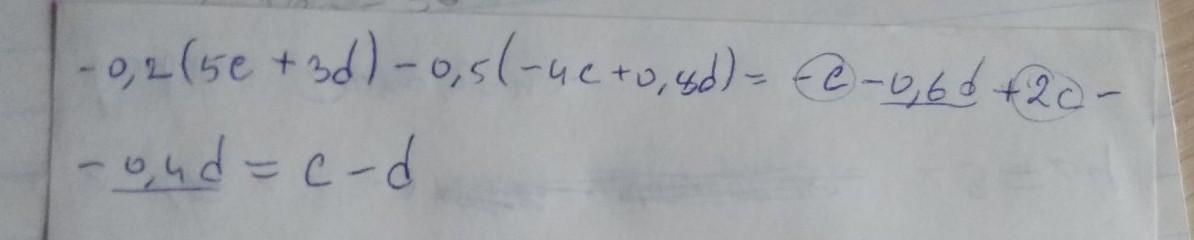 -0,2(5c+3d)-0,5(-4c+0,8d)= -c-0,6d+2c-
-0,4d=c-d